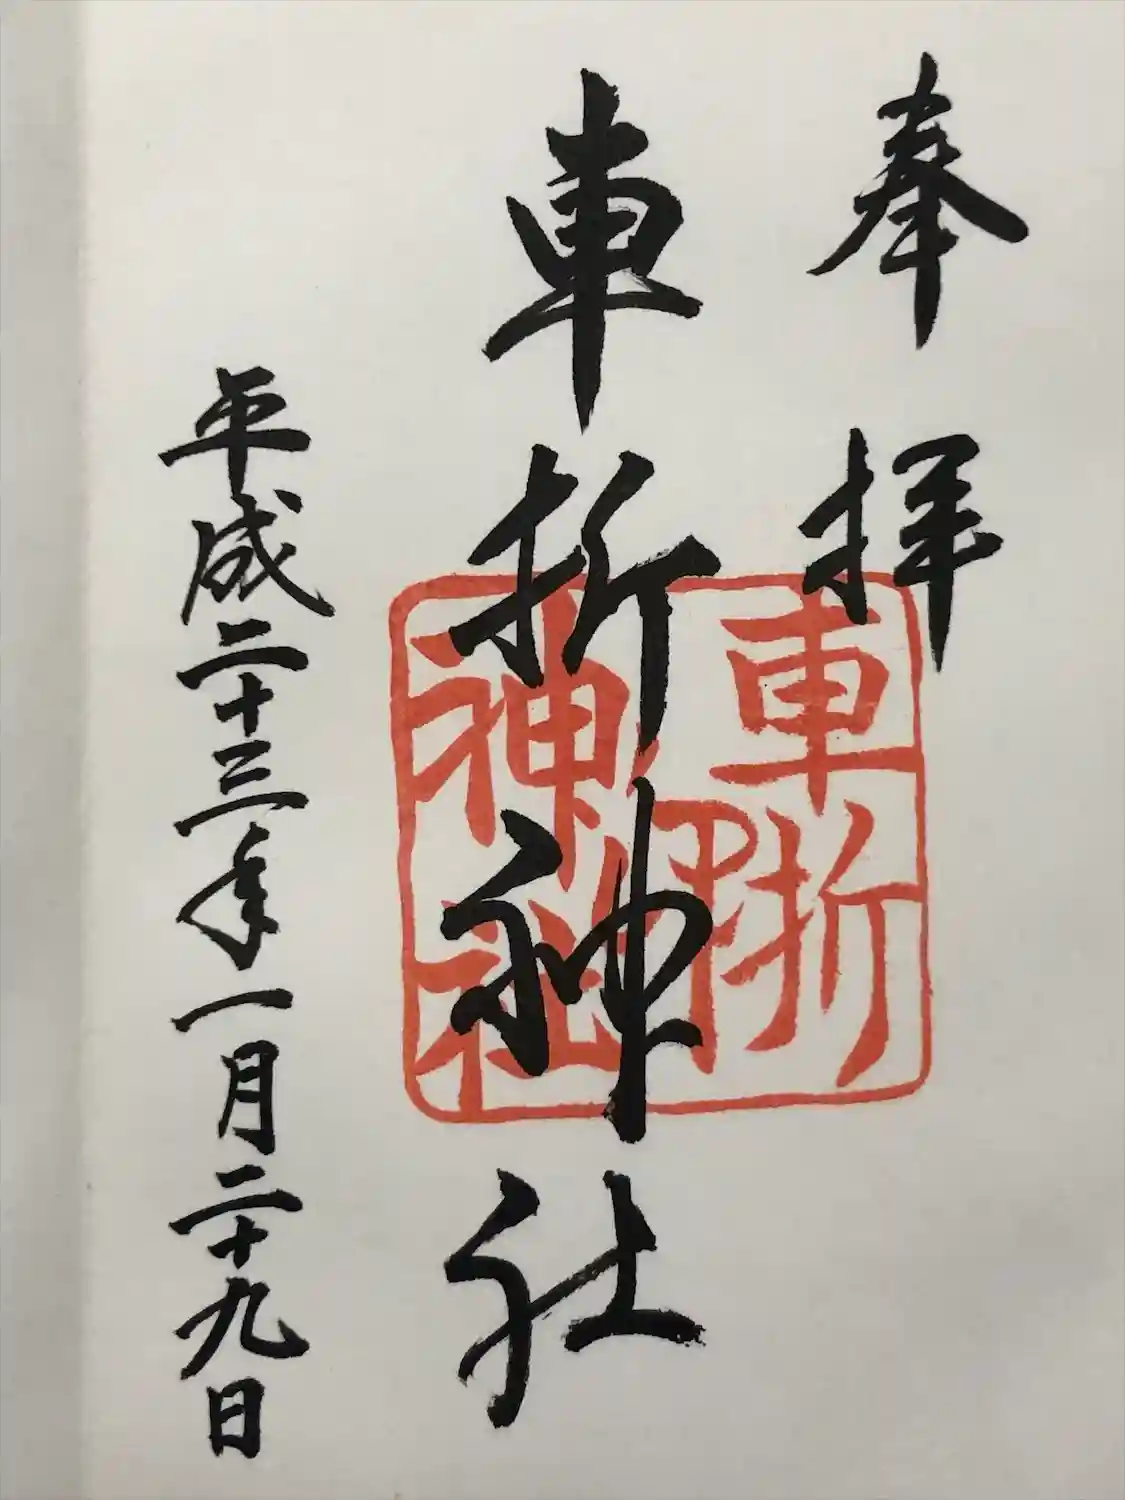 奉拝
車折神社
平成二十三年一月二十九日
車折
神社
印